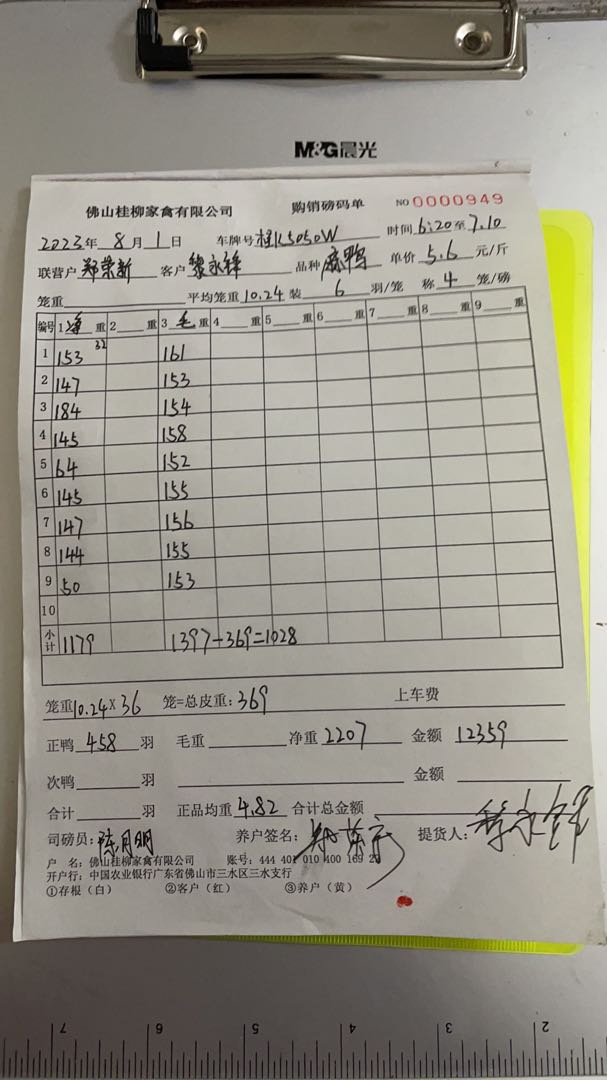 M&G晨光
佛山桂柳家禽有限公司 购销磅码单 NO 0000949
2023年 8月 1日 车牌号 桂K5050W 时间 6:20至7.10
联营户 郑荣新 客户 黎永锋 品种 麻鸭 单价 5.6 元/斤
笼重 平均笼重 10.24 装 6 羽/笼 称 4 笼/磅
编号 1 净 重 2 重 3 毛 重 4 重 5 重 6 重 7 重 8 重 9 重
1 153 32 161
2 147 153
3 184 154
4 145 158
5 64 152
6 145 155
7 147 156
8 144 155
9 50 153
10
小计 1179 1397-369=1028
笼重 10.24×36 笼=总皮重: 369 上车费
正鸭 458 羽 毛重 净重 2207 金额 12359
次鸭 羽 金额
合计 羽 正品均重 4.82 合计总金额
司磅员: 陈月明 养户签名: 提货人: 黎永锋
户 名: 佛山桂柳家禽有限公司 账号: 444 401 010 400 169 27
开户行: 中国农业银行广东省佛山市三水区三水支行
①存根（白） ②客户（红） ③养户（黄）
7 6 5 4 3 2